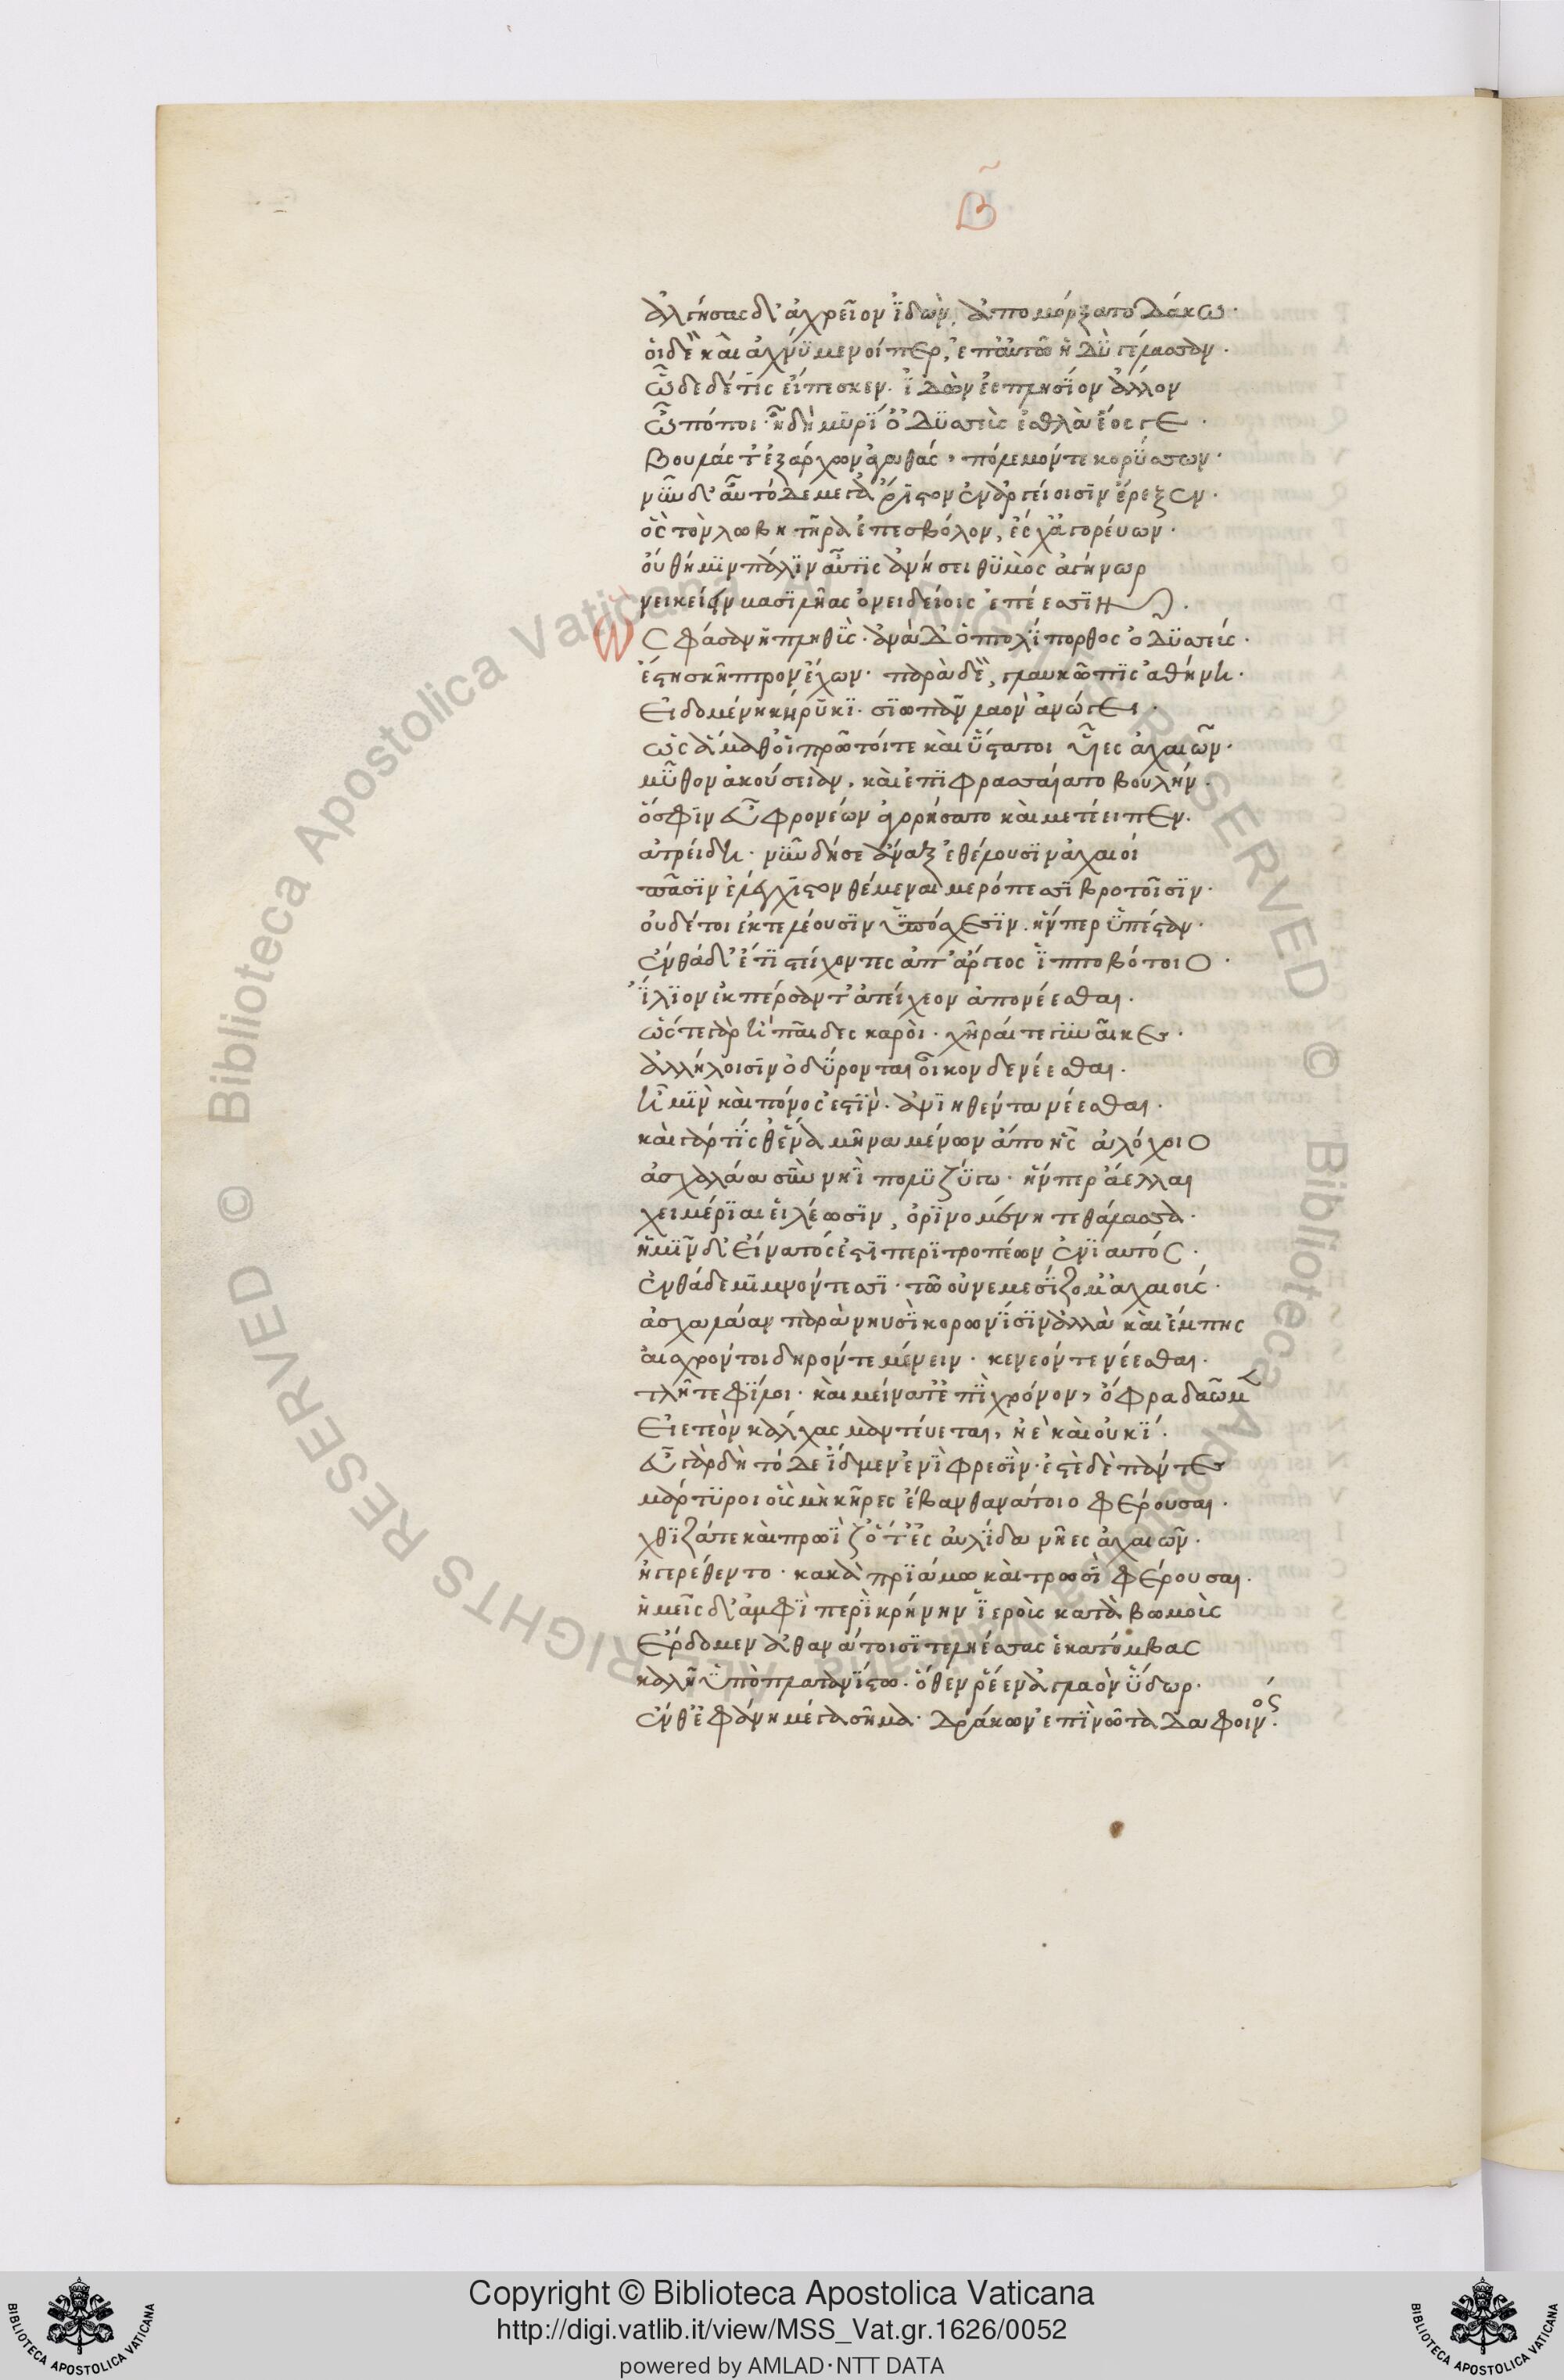 Β
ἀλγήσας δ' ἀχρεῖον ἰδὼν, ἀπομόρξατο δάκρυ·
οἱ δὲ καὶ ἀχνύμενοί περ, ἐπ' αὐτῶ ἡδὺ γέλασσαν·
ὧδε δέ τις εἴπεσκεν· ἰδὼν ἐς πλησίον ἄλλον
ὦ πόποι· ἦ δὴ μυρί' ὀδυσσεὺς ἐσθλὰ ἔοργε·
βουλάς τ' ἐξάρχων ἀγαθάς, πόλεμόν τε κορύσσων·
νῦν δ' αὖ τόδε μετ' ἄριστον ἐν ἀργείοισιν ἔρεξεν·
ὃς τὸν λωβητῆρα ἐπεσβόλον, ἔσχ' ἀγορέων·
οὔ θήν μιν πάλιν αὖτις ἀνήσει θυμὸς ἀγήνωρ
νεικείειν βασιλῆας ὀνειδείοις ἐπέεσσιν·
ὣς φάσαν ἡ πληθὺς· ἀνὰ δ' ὁ πτολίπορθος ὀδυσσεύς·
ἔστη σκῆπτρον ἔχων· παρὰ δὲ, γλαυκῶπις ἀθήνη·
εἰδομένη κήρυκι· σιωπᾶν λαὸν ἀνώγει·
ὡς ἅμα θ' οἱ πρῶτοί τε καὶ ὕστατοι υἷες ἀχαιῶν·
μῦθον ἀκούσειαν, καὶ ἐπιφρασσαίατο βουλήν·
ὅ σφιν εὖ φρονέων ἀγορήσατο καὶ μετέειπεν·
ἀτρείδη· νῦν δή σε ἄναξ ἐθέλουσιν ἀχαιοί
πᾶσιν ἐλέγχιστον θέμεναι μερόπεσσι βροτοῖσιν·
οὐδέ τοι ἐκτελέουσιν ὑπόσχεσιν. ἥνπερ ὑπέσταν·
ἐνθάδ' ἔτι στείχοντες ἀπ' ἄργεος ἱπποβότοιο·
ἴλιον ἐκπέρσαντ' ἀτείχεον ἀπονέεσθαι·
ὥς τε γὰρ ἢ παῖδες νεαροὶ· χῆραί τε γυναῖκες·
ἀλλήλοισιν ὀδύρονται οἶκον δε νέεσθαι·
ἦ μὴν καὶ πόνος ἐστὶν· ἀνιηθέντα νέεσθαι·
καὶ γάρ τίς θ' ἕνα μῆνα μένων ἀπὸ ἧς ἀλόχοιο
ἀσχαλάα σὺν νηὶ πολυζύγω· ἥνπερ ἄελλαι
χειμέριαι εἰλέωσιν, ὀρινομένη τε θάλασσα·
ἡμῖν δ' εἴνατός ἐστι περιτροπέων ἐνιαυτός·
ἐνθάδε μιμνόντεσσι· τῶ οὐ νεμεσίζομ' ἀχαιούς·
ἀσχαλάαν παρὰ νηυσὶ κορωνίσιν ἀλλὰ καὶ ἔμπης
αἰσχρόν τοι δηρόν τε μένειν· κενεόν τε νέεσθαι·
τλῆτε φίλοι· καὶ μείνατ' ἐπὶ χρόνον, ὄφρα δαῶμεν
εἰ ἐτεὸν κάλχας μαντεύεται, ἠὲ καὶ οὐκί·
εὖ γὰρ δὴ τόδε ἴδμεν ἐνὶ φρεσὶν· ἐστὲ δὲ πάντες
μάρτυροι οὓς μὴ κῆρες ἔβαν θανάτοιο φέρουσαι·
χθιζά τε καὶ πρωϊζ' ὅτ' ἐς αὐλίδα νῆες ἀχαιῶν·
ἠγερέθεντο· κακὰ πριάμω καὶ τρωσὶ φέρουσαι·
ἡμεῖς δ' ἀμφὶ περὶ κρήνην ἱεροὺς κατὰ βωμοὺς
ἔρδομεν ἀθανάτοισι τεληέσσας ἑκατόμβας
καλῇ ὑπὸ πλατανίστω· ὅθεν ῥέεν ἀγλαὸν ὕδωρ·
ἔνθ' ἐφάνη μέγα σῆμα· δράκων ἐπὶ νῶτα δαφοινός·
© Biblioteca Apostolica Vaticana ALL RIGHTS RESERVED © Biblioteca Apostolica Vaticana ALL RIGHTS RESERVED
Copyright © Biblioteca Apostolica Vaticana
http://digi.vatlib.it/view/MSS_Vat.gr.1626/0052
powered by AMLAD·NTT DATA
BIBLIOTECA APOSTOLICA VATICANA
BIBLIOTECA APOSTOLICA VATICANA